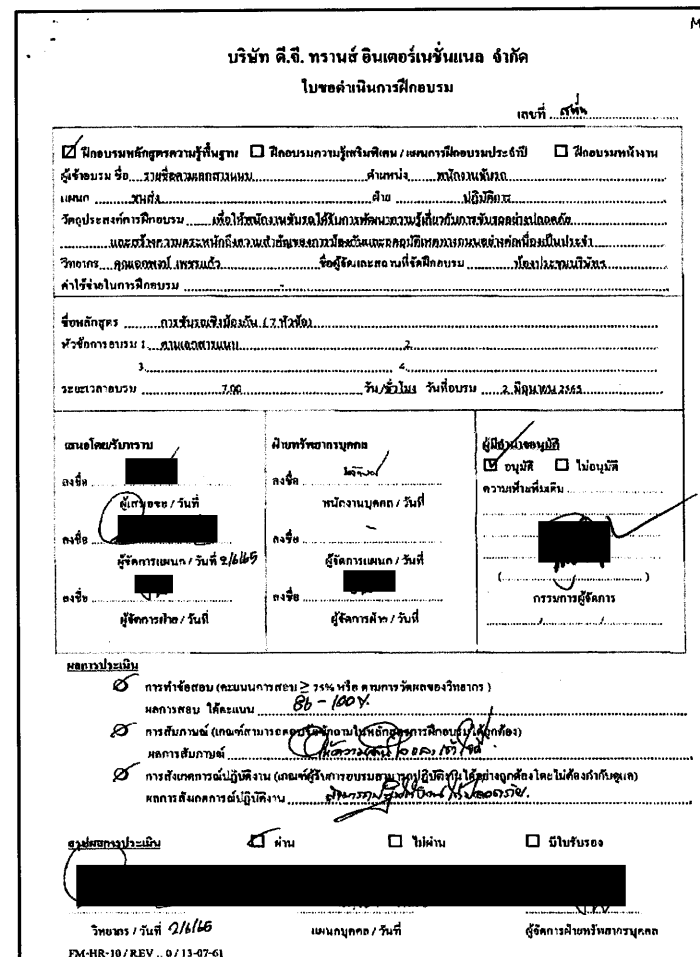 บริษัท ดี.จี. ทรานส์ อินเตอร์เนชั่นแนล จำกัด
ใบขอดำเนินการฝึกอบรม
เลขที่
ฝึกอบรมหลักสูตรความรู้พื้นฐาน ฝึกอบรมความรู้เสริมพิเศษ / แผนการฝึกอบรมประจำปี ฝึกอบรมหน้างาน
ผู้เข้าอบรม ชื่อ รายชื่อตามเอกสารแนบ ตำแหน่ง พนักงานขับรถ
แผนก ขนส่ง ฝ่าย ปฏิบัติการ
วัตถุประสงค์การฝึกอบรม เพื่อให้พนักงานขับรถได้รับการพัฒนาความรู้เกี่ยวกับการขับรถอย่างปลอดภัย
และสร้างความตระหนักถึงความสำคัญของการป้องกันและลดอุบัติเหตุทางถนนอย่างต่อเนื่องเป็นประจำ
วิทยากร คุณเอกพงป์ เพชรแก้ว ชื่อผู้จัดและสถานที่จัดฝึกอบรม ห้องประชุมบริษัทฯ
ค่าใช้จ่ายในการฝึกอบรม -
ชื่อหลักสูตร การขับรถเชิงป้องกัน ( 7 หัวข้อ)
หัวข้อการอบรม 1. ตามเอกสารแนบ 2
3 4.
ระยะเวลาอบรม 7.00 วัน/ชั่วโมง วันที่อบรม 2 มิถุนายน 2565
เสนอโดย/รับทราบ ฝ่ายทรัพยากรบุคคล ผู้มีอำนาจอนุมัติ
อนุมัติ ไม่อนุมัติ
ลงชื่อ ลงชื่อ ความเห็นเพิ่มเติม
ผู้เสนอขอ / วันที่ พนักงานบุคคล / วันที่
ลงชื่อ ลงชื่อ
ผู้จัดการแผนก / วันที่ 2/6/65 ผู้จัดการแผนก / วันที่
ลงชื่อ ลงชื่อ กรรมการผู้จัดการ
ผู้จัดการฝ่าย / วันที่ ผู้จัดการฝ่าย / วันที่
ผลการประเมิน
การทำข้อสอบ (คะแนนการสอบ ≥ 75% หรือ ตามการวัดผลของวิทยากร )
ผลการสอบ ได้คะแนน 86 - 100%
การสัมภาษณ์ (เกณฑ์สามารถตอบข้อซักถามในหลักสูตรการฝึกอบรมได้ถูกต้อง)
ผลการสัมภาษณ์
การสังเกตการณ์ปฏิบัติงาน (เกณฑ์ผู้รับการอบรมสามารถปฏิบัติงานได้อย่างถูกต้องโดยไม่ต้องกำกับดูแล)
ผลการสังเกตการณ์ปฏิบัติงาน
สรุปผลการประเมิน ผ่าน ไม่ผ่าน มีใบรับรอง
วิทยากร / วันที่ 2/6/65 แผนกบุคคล / วันที่ ผู้จัดการฝ่ายทรัพยากรบุคคล
FM-HR-10 / REV .. 0 / 13-07-61